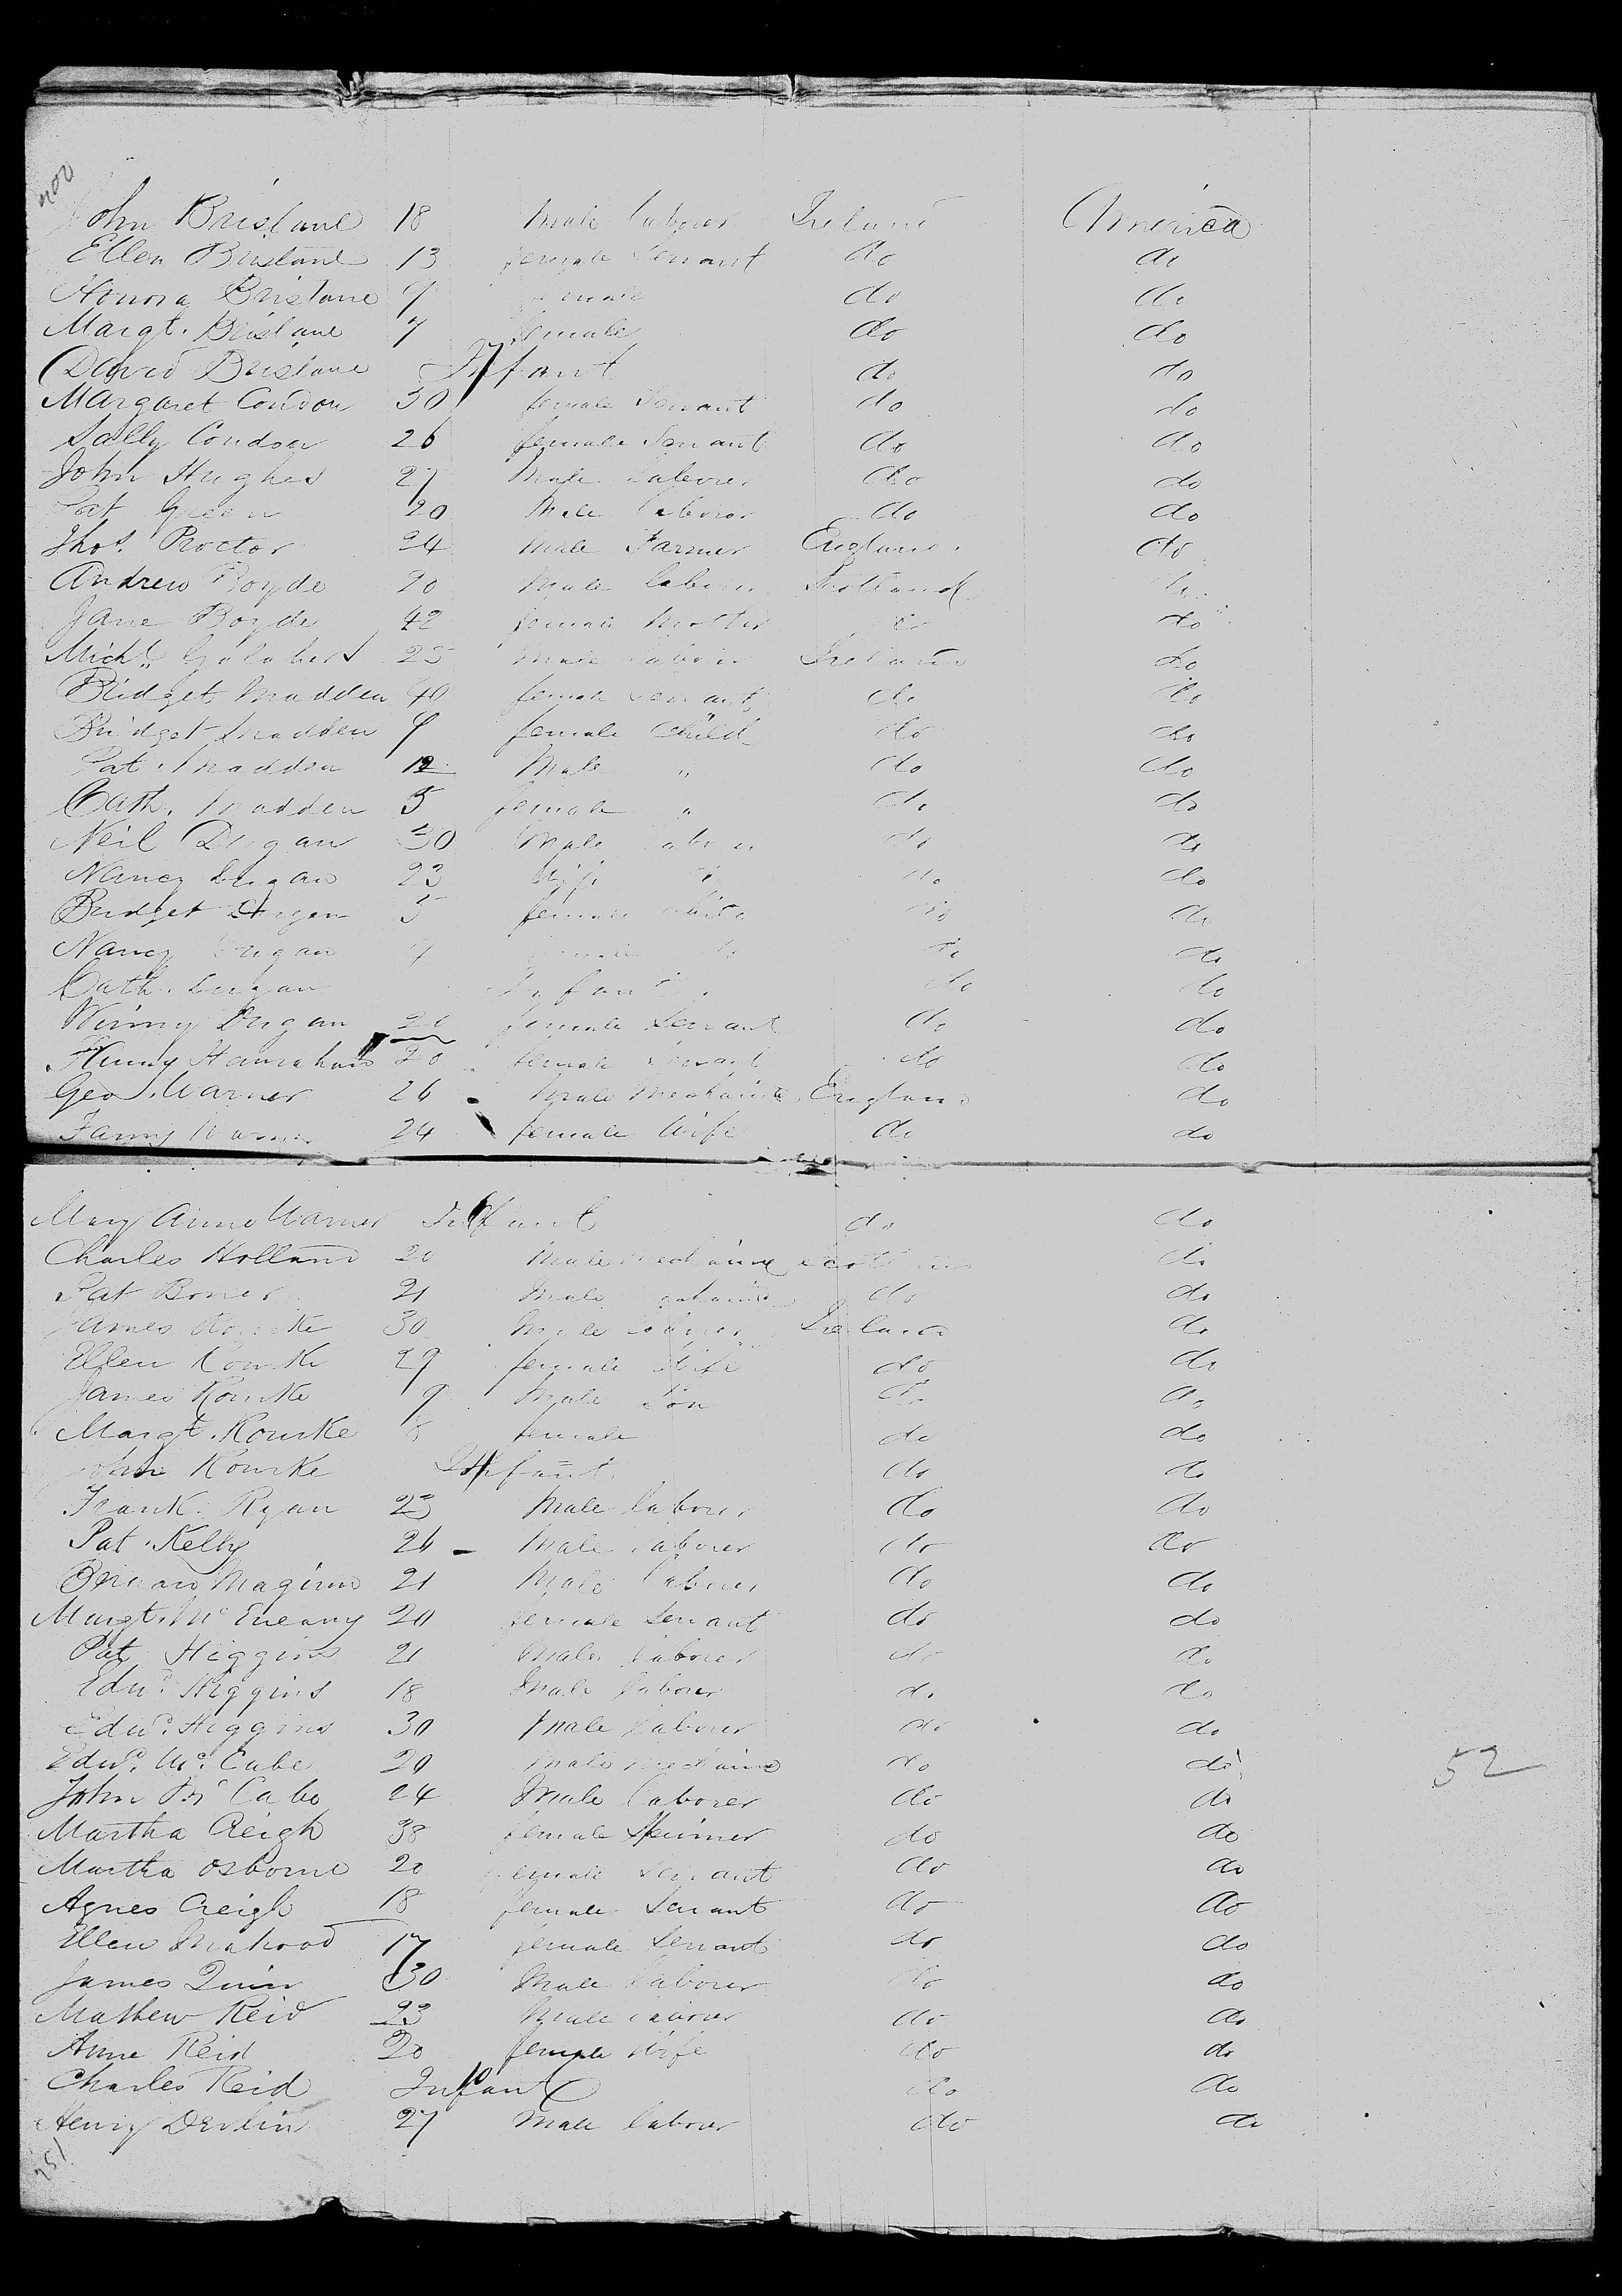 400
John Brislane 18 Male laborer Ireland America
Ellen Brislane 13 female Servant do do
Honora Brislane 9 female do do
Margt. Brislane 7 female do do
David Brislane Infant do do
Margaret Condon 30 female Servant do do
Sally Condon 26 female Servant do do
John Hughes 27 Male laborer do do
Pat Green 20 Male laborer do do
Thos. Proctor 24 Male Farmer England do
Andrew Boyde 20 Male laborer Scotland do
Jane Boyde 42 female Mother do do
Michl. 25 Male laborer Ireland do
Bridget Madden 40 female Servant do do
Bridget Madden 9 female Child do do
Pat. Madden 12 Male " do do
Cath. Madden 5 female " do do
Neil Dugan 30 Male laborer do do
Nancy Dugan 23 Wife do do
Bridget Dugan 5 female do do
Nancy Dugan female do do do
Cath. Dugan Infant do do
Winny Dugan 20 female Servant do do
Hanrahan 20 female Servant do do
Geo. Warner 26 Male Mechanic England do
Fanny Warner 24 female Wife do do
Mary Anne Warner Infant do do
Charles Holland 20 Male Mechanic Scotland do
Pat 21 Male Mechanic do do
James Rourke 30 Male laborer Ireland do
Ellen Rourke 29 female Wife do do
James Rourke 9 Male Son do do
Margt. Rourke 8 female do do
John Rourke Infant do do
Frank Ryan 23 Male laborer do do
Pat. Kelly 26 Male laborer do do
Maginn 21 Male laborer do do
Margt. McEneany 20 female Servant do do
Pat Higgins 21 Male laborer do do
Edwd. Higgins 18 Male laborer do do
Edwd. Higgins 30 Male laborer do do
Edwd. McCabe 20 Male Mechanic do do
52
John McCabe 24 Male laborer do do
Martha Creigh 38 female do do
Martha Osborne 20 female Servant do do
Agnes Creigh 18 female Servant do do
Ellen Mahood 17 female Servant do do
James Quinn 30 Male laborer do do
Mathew Reid 23 Male laborer do do
Anne Reid 20 female Wife do do
Charles Reid Infant do do
Henry Devlin 27 Male laborer do do
451